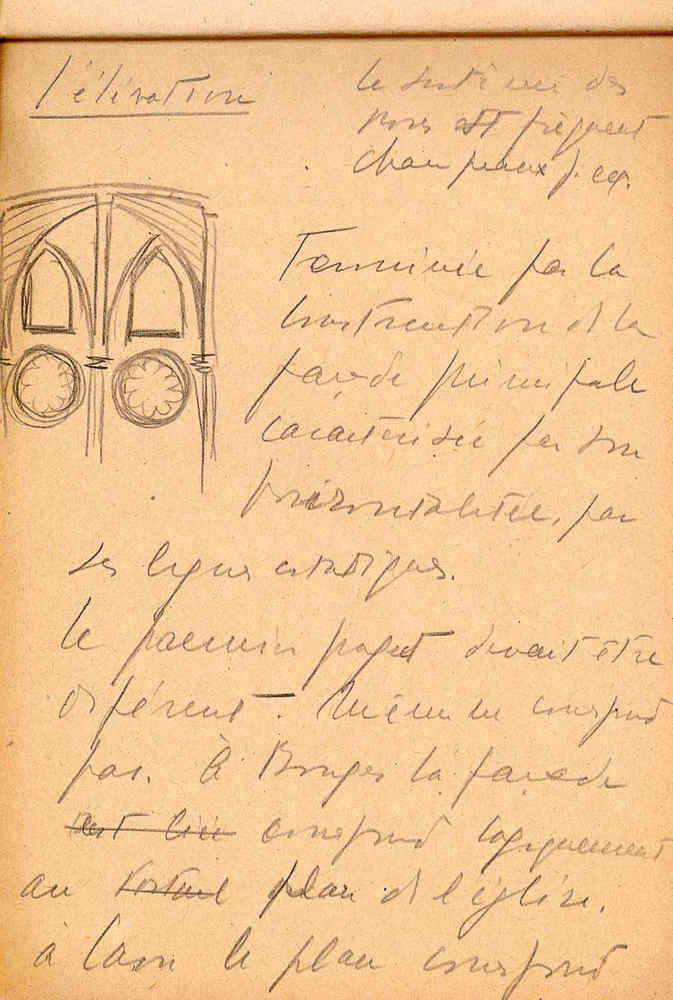 L'élévation
Le systeme des
roses est fréquent
Champeaux p. ex.
Terminée par la
construction de la
façade principale
caractérisée par son
horizontalitée, par
ses lignes estatiques.
Le premier projet devait être
diférent. Même ne correspond
pas. À Bourges la façade
est liée correspond logiquement
au plan de l'église.
à Laon le plan correspond